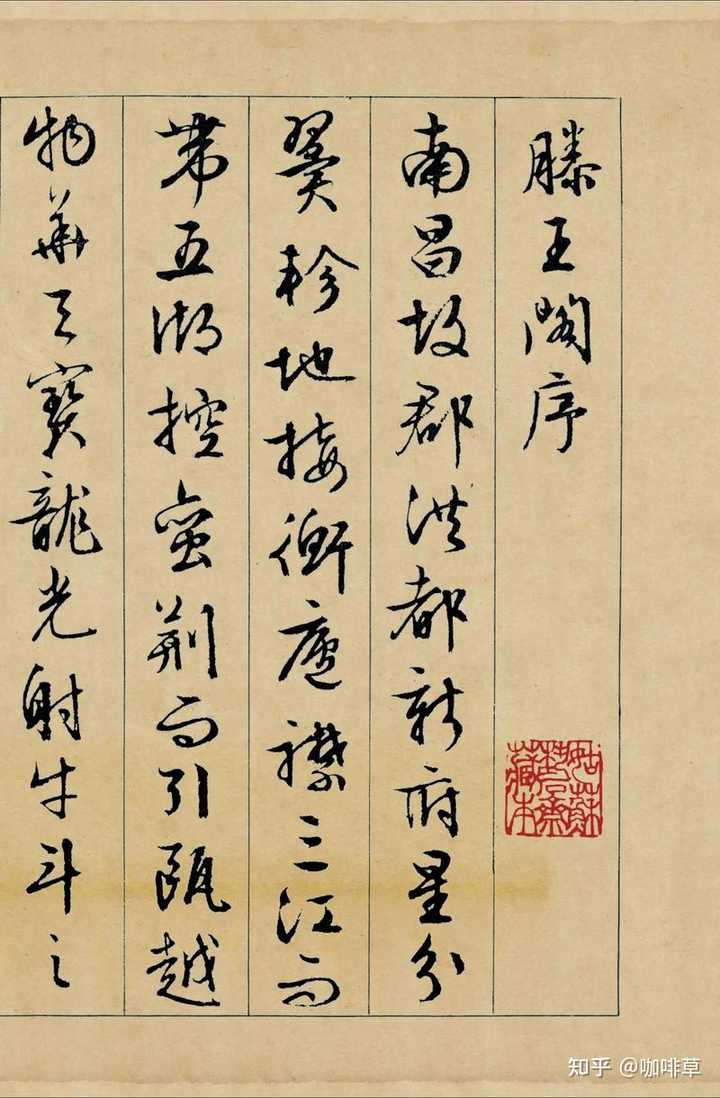 滕王閣序
南昌故郡洪都新府星分
翼軫地接衡廬襟三江而
帶五湖控蠻荊而引甌越
物華天寶龍光射牛斗之
姑蘇
藏本
知乎 @咖啡草